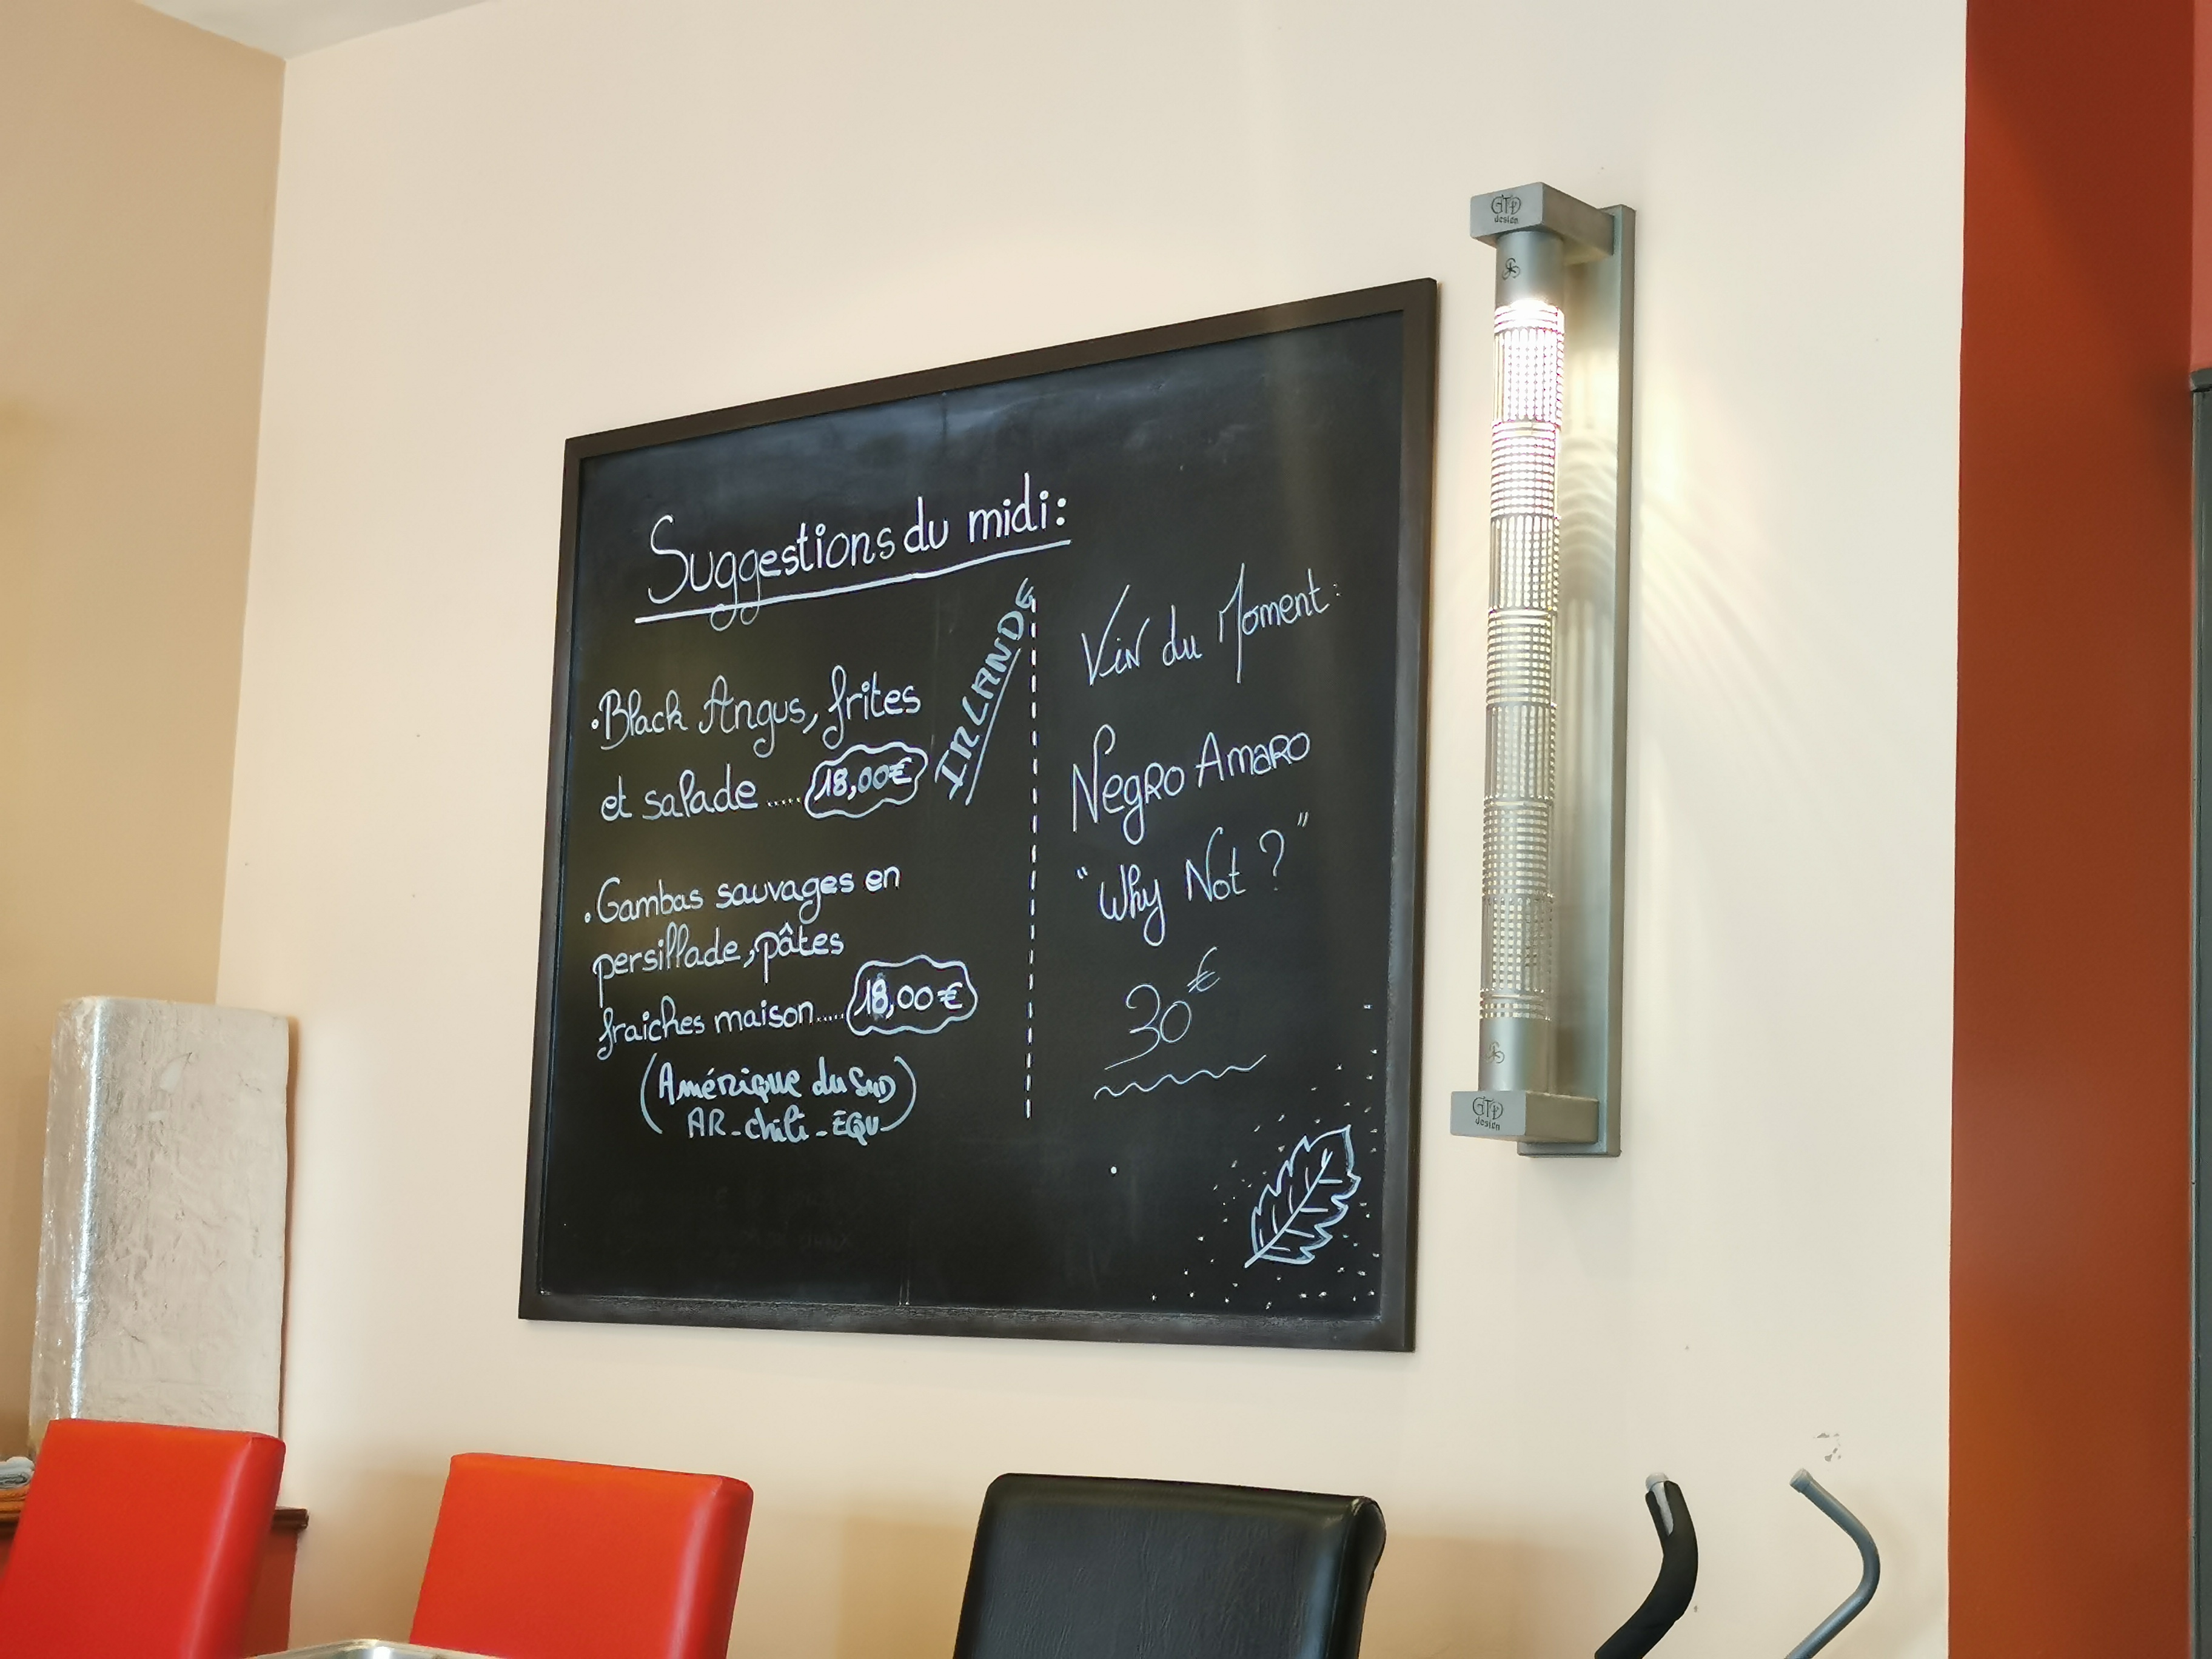 Suggestions du midi:
• Black Angus, frites
et salade ..... 18,00€
IRLANDE
• Gambas sauvages en
persillade, pâtes
fraiches maison..... 18,00€
(Amérique du Sud)
AR - chili - EQU
Vin du Moment:
Negro Amaro
"Why Not ?"
30€
GTD
design
GTD
design